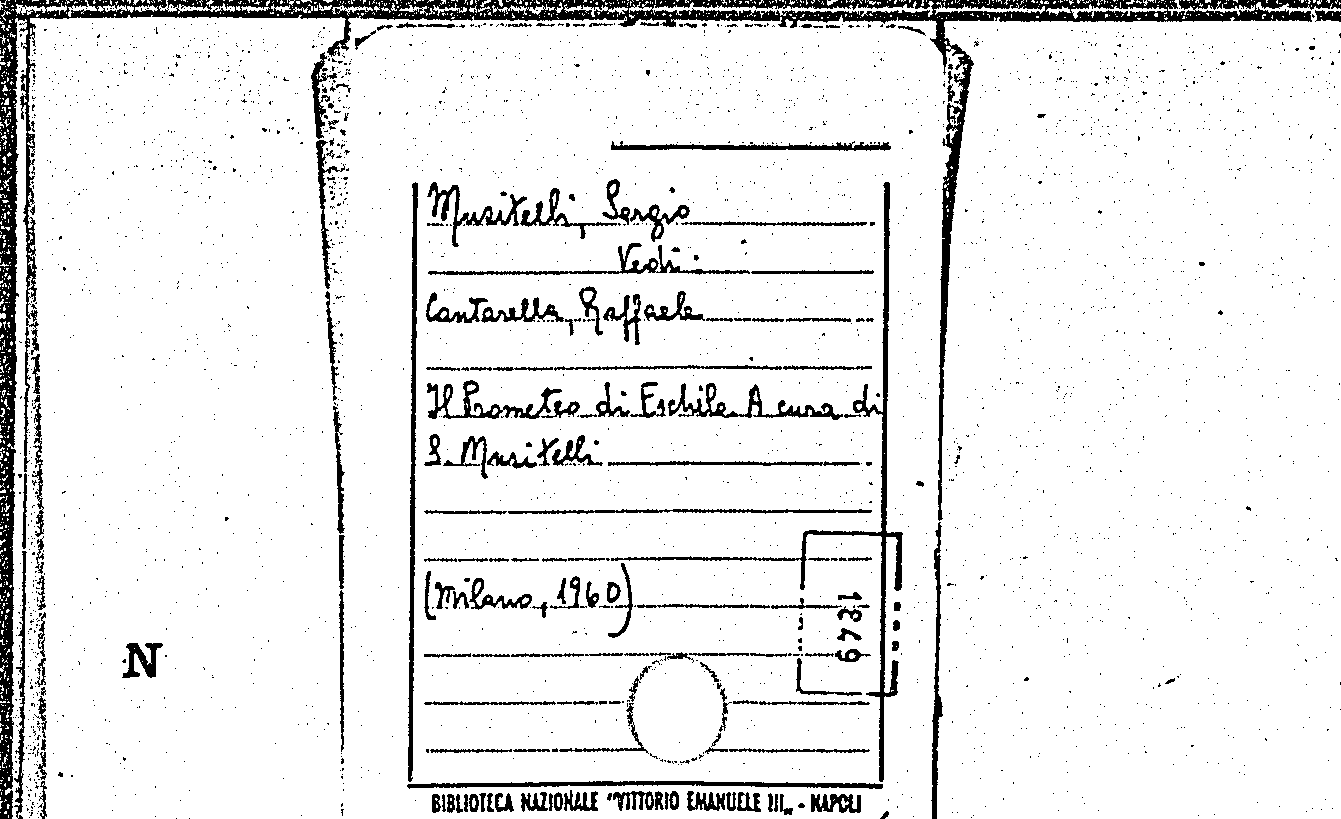 Musitelli, Sergio
Vedi:
Cantarella, Raffaele
Il Prometeo di Eschilo. A cura di
S. Musitelli
(Milano, 1960)
1849
N
BIBLIOTECA NAZIONALE "VITTORIO EMANUELE III„ - NAPOLI